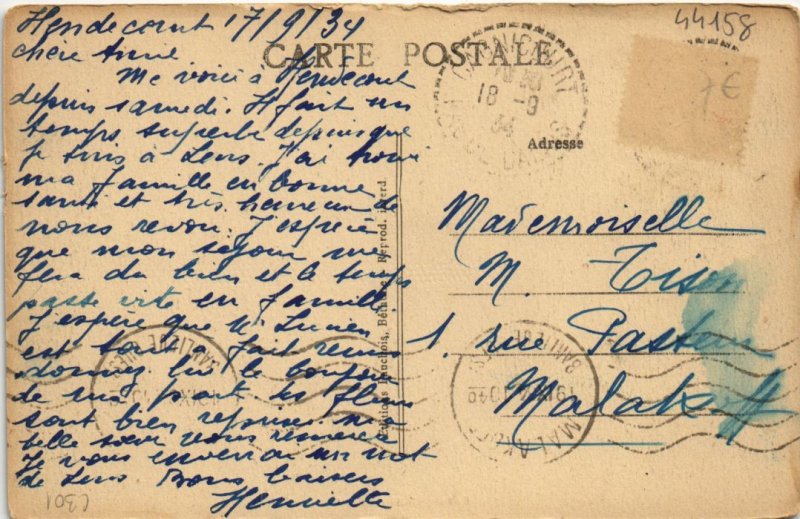 Hendecourt 17/9/34
chère Annie
Me voici à Hendecourt
depuis samedi. Il fait un
temps superbe depuis que
je suis à Lens. J'ai trouvé
ma famille en bonne
santé et très heureux de
nous revoir. J'espère
que mon séjour me
fera du bien et le temps
passe vite en famille.
J'espère que Mr Lucien
est tout à fait remis
donnez lui le bonjour
de ma part les fleurs
sont bien reprises. ma
belle sœur vous remercie
Je vous enverrai un mot
de Lens. Bons baisers
Henriette
C301
CARTE POSTALE
44158
7€
18 - 9
34
Adresse
Mademoiselle
M. Tison
1, rue Pasteur
Malakoff
MALAKOFF
Reprod. interd